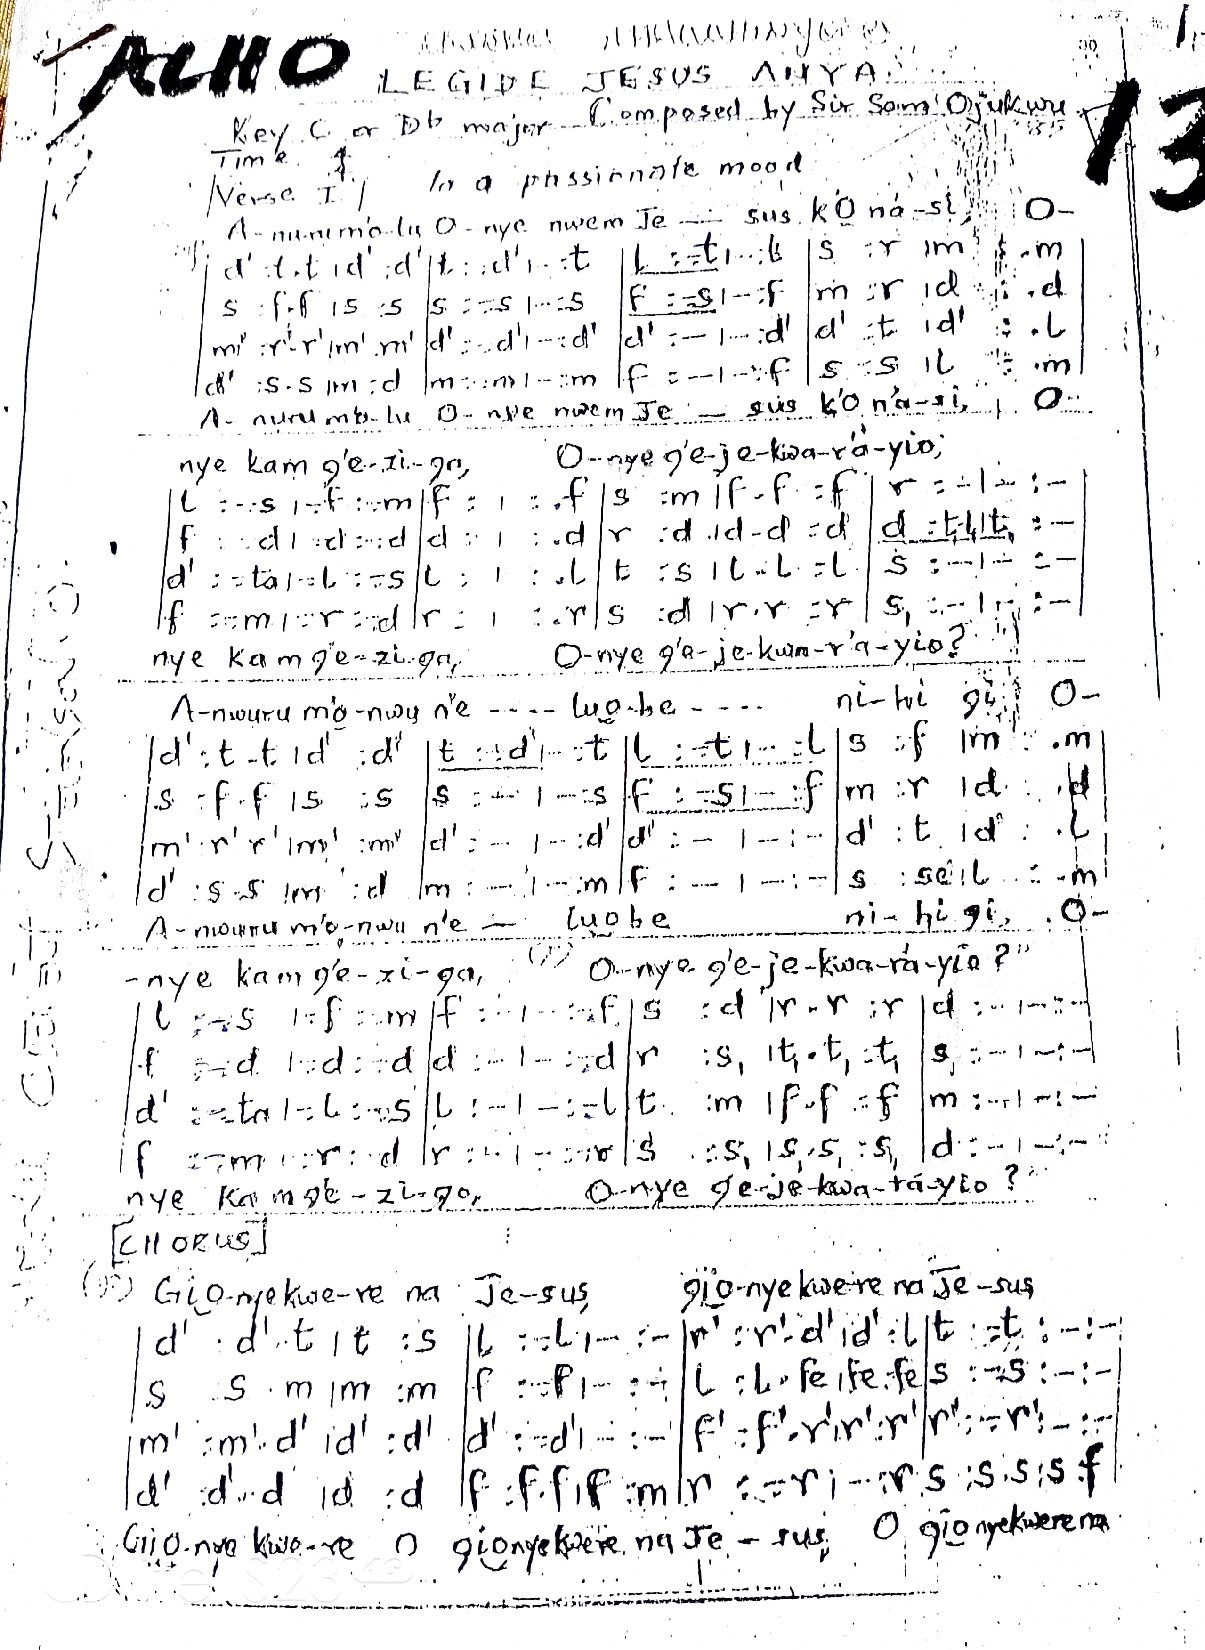 ACHO
LEGIDE JESUS ANYA
13
Key C or Db major Composed by Sir Sam Ojukwu
Time
Verse I In a passionate mood
A-nurum'o-lu O-nye nwem Je — sus k'O n'a-si, O-
d' :t.t |d' :d' | t :-.d' |- :t | l :-.t |- :l | s :r |m : .m
s :f.f |s :s | s :-.s |- :s | f :-.s |- :f | m :r |d : .d
m' :r'.r' |m' :m' | d' :-.d' |- :d' | d' :- |- :d' | d' :t |d' : .l
d' :s.s |m :d | m :-.m |- :m | f :- |- :f | s :s |l : .m
A-nurum'o-lu O-nye nwem Je — sus k'O n'a-si, O-
nye kam g'e-zi-ga, O-nye g'e-je-kwa-r'a-yio;
l :-.s |-.f :-.m | f : | : .f | s :m |f.f :f | r :- |- :-
f :-.d |-.d :-.d | d : | : .d | r :d |d.d :d | d :t, |t, :-
d' :-.ta |-.l :-.s | l : | : .l | t :s |l.l :l | s :- |- :-
f :-.m |-.r :-.d | r : | : .r | s :d |r.r :r | s, :- |- :-
nye kam g'e-zi-ga, O-nye g'a-je-kwa-r'a-yio?
A-nwuru m'o-nwu n'e ---- luo-be ---- ni-hi gi, O-
d' :t.t |d' :d' | t :-.d' |- :t | l :-.t |- :l | s :f |m : .m
s :f.f |s :s | s :- |- :s | f :-.s |- :f | m :r |d : .d
m' :r'.r' |m' :m' | d' :- |- :d' | d' :- |- :- | d' :t |d' : .l
d' :s.s |m :d | m :- |- :m | f :- |- :- | s :se |l : .m
A-nwuru m'o-nwu n'e — luobe ni-hi gi, O-
-nye kam g'e-zi-ga, O-nye g'e-je-kwa-ra-yio?"
l :-.s |-.f :-.m | f :- |- :-.f | s :d |r.r :r | d :- |- :-
f :-.d |-.d :-.d | d :- |- :-.d | r :s, |t,.t, :t, | s, :- |- :-
d' :-.ta |-.l :-.s | l :- |- :-.l | t :m |f.f :f | m :- |- :-
f :-.m |-.r :-.d | r :- |- :-.r | s :s, |s,.s, :s, | d :- |- :-
nye kam g'e-zi-ga, O-nye g'e-je-kwa-ra-yio?
[CHORUS]
GiO-nyekwe-re na Je-sus, giO-nyekwere na Je-sus,
d' :d'.t |t :s | l :-.l |- :- | r' :r'.d' |d' :l | t :-.t :- :-
s :s.m |m :m | f :-.f |- :- | l :l.fe |fe :fe | s :-.s :- :-
m' :m'.d' |d' :d' | d' :-.d' |- :- | f' :f'.r' |r' :r' | r' :-.r' :- :-
d' :d'.d |d :d | f :f.f |f :m | r :-.r |- :r | s :s.s |s :f
GiO-nye kwe-re O gionyekwere na Je-sus, O gionyekwere na